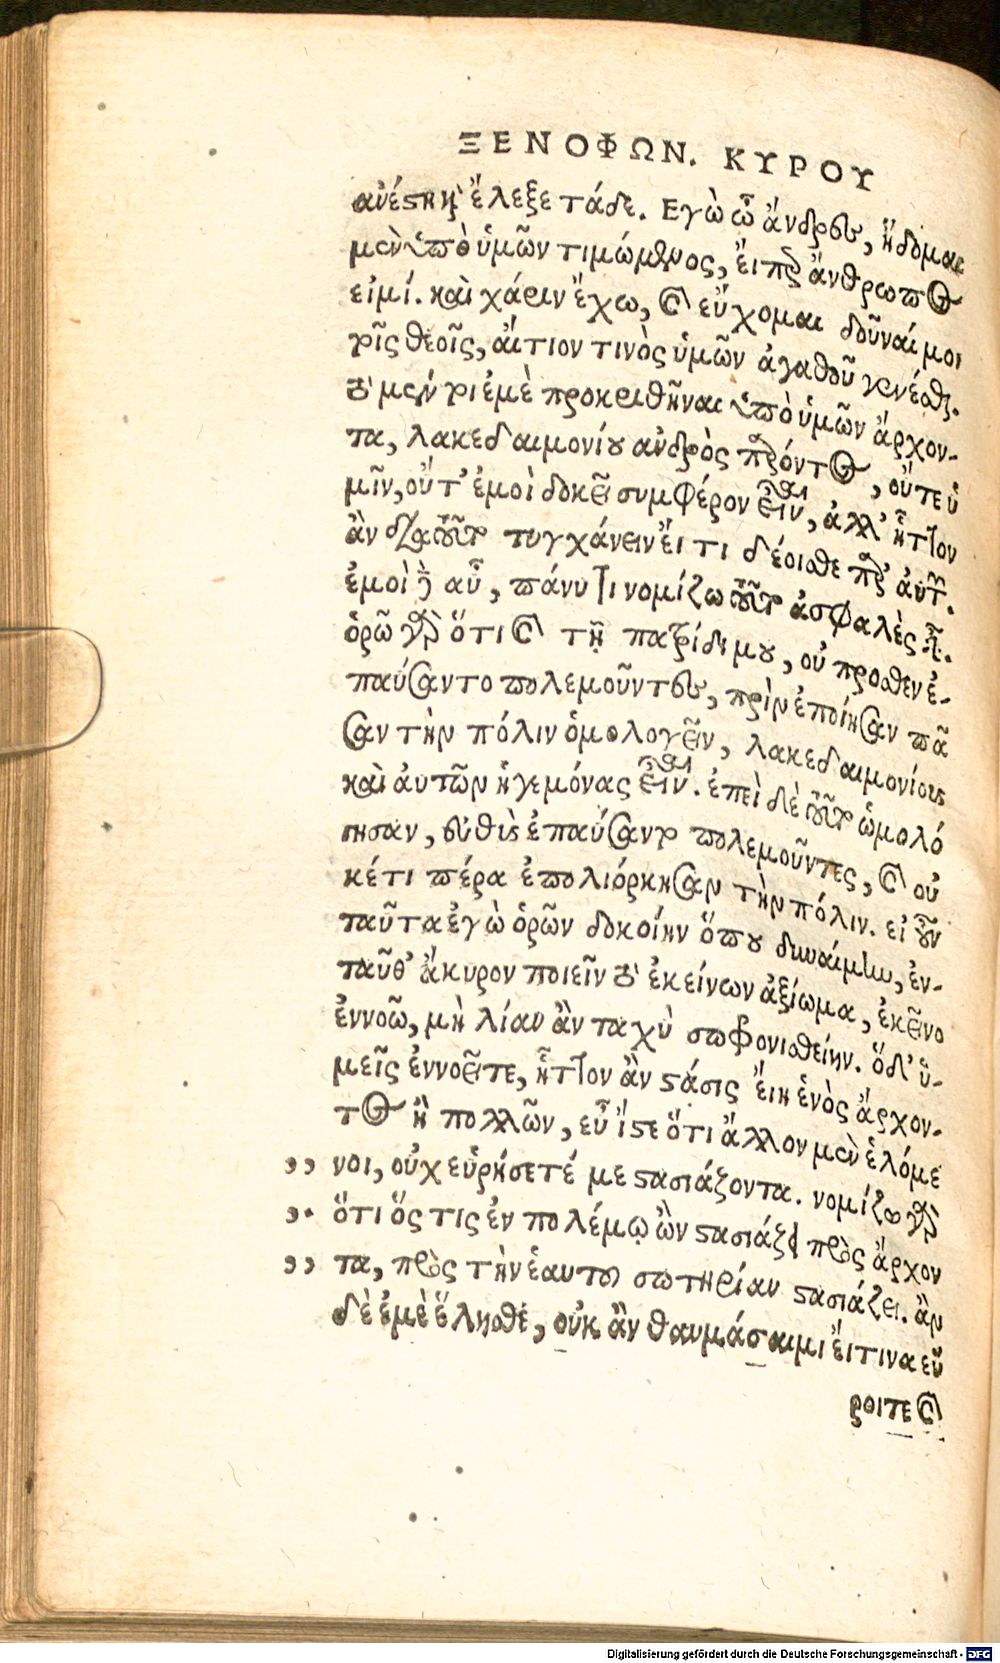 ΞΕΝΟΦΩΝ. ΚΥΡΟΥ
ἀνέστη καὶ ἔλεξε τάδε. Εγὼ ὦ ἄνδρες, ἥδομαι
μὲν ὑπὸ ὑμῶν τιμώμενος, ἔιπερ ἄνθρωπος
εἰμί. καὶ χάριν ἔχω, καὶ εὔχομαι δοῦναί μοι
τοῖς θεοῖς, ἄιτιον τινὸς ὑμῖν ἀγαθοῦ γενέσθαι.
τὸ μέντοι ἐμὲ προκριθῆναι ὑπὸ ὑμῶν ἄρχον-
τα, λακεδαιμονίου ἀνδρὸς παρόντος, οὔτε ὑ
μῖν, οὔτ' ἐμοὶ δοκεῖ συμφέρον εἶναι, ἀλλ' ἧττον
ἂν διὰ τοῦτο τυγχάνειν ἔι τι δέοισθε παρ' ἀυτῶν.
ἐμοὶ δὲ αὖ, πάνυ τι νομίζω τοῦτο ἀσφαλὲς εἶναι.
ὁρῶ γὰρ ὅτι καὶ τῇ πατρίδι μου, οὐ πρόσθεν ἐ-
παύσαντο πολεμοῦντες, πρὶν ἐποίησαν πᾶ
σαν τὴν πόλιν ὁμολογεῖν, λακεδαιμονίους
καὶ ἀυτῶν ἡγεμόνας εἶναι. ἐπεὶ δὲ τοῦτο ὡμολό
γησαν, εὐθὺς ἐπαύσαντο πολεμοῦντες, καὶ οὐ
κέτι πέρα ἐπολιόρκησαν τὴν πόλιν. εἰ οὖν
ταῦτα ἐγὼ ὁρῶν δοκοίην ὅπου δυναίμην, ἐν-
ταῦθ' ἄκυρον ποιεῖν τὸ ἐκείνων ἀξίωμα, ἐκεῖνο
ἐννοῶ, μὴ λίαν ἂν ταχὺ σωφρονισθείην. ὅδ' ὑ-
μεῖς ἐννοεῖτε, ἧττον ἂν στάσις ἔιη ἑνὸς ἄρχον-
τος ἢ πολλῶν, εὖ ἴστε ὅτι ἄλλον μὲν ἑλόμε
,, νοι, οὐχ εὑρήσετέ με στασιάζοντα. νομίζω γὰρ
,. ὅτι ὅς τις ἐν πολέμῳ ὢν στασιάζει πρὸς ἄρχον
,, τα, πρὸς τὴν ἑαυτοῦ σωτηρίαν στασιάζει. ἂν
δὲ ἐμὲ ἕλησθε, οὐκ ἂν θαυμάσαιμι ἔι τινα εὕ
ροιτε καὶ
Digitalisierung gefördert durch die Deutsche Forschungsgemeinschaft - DFG